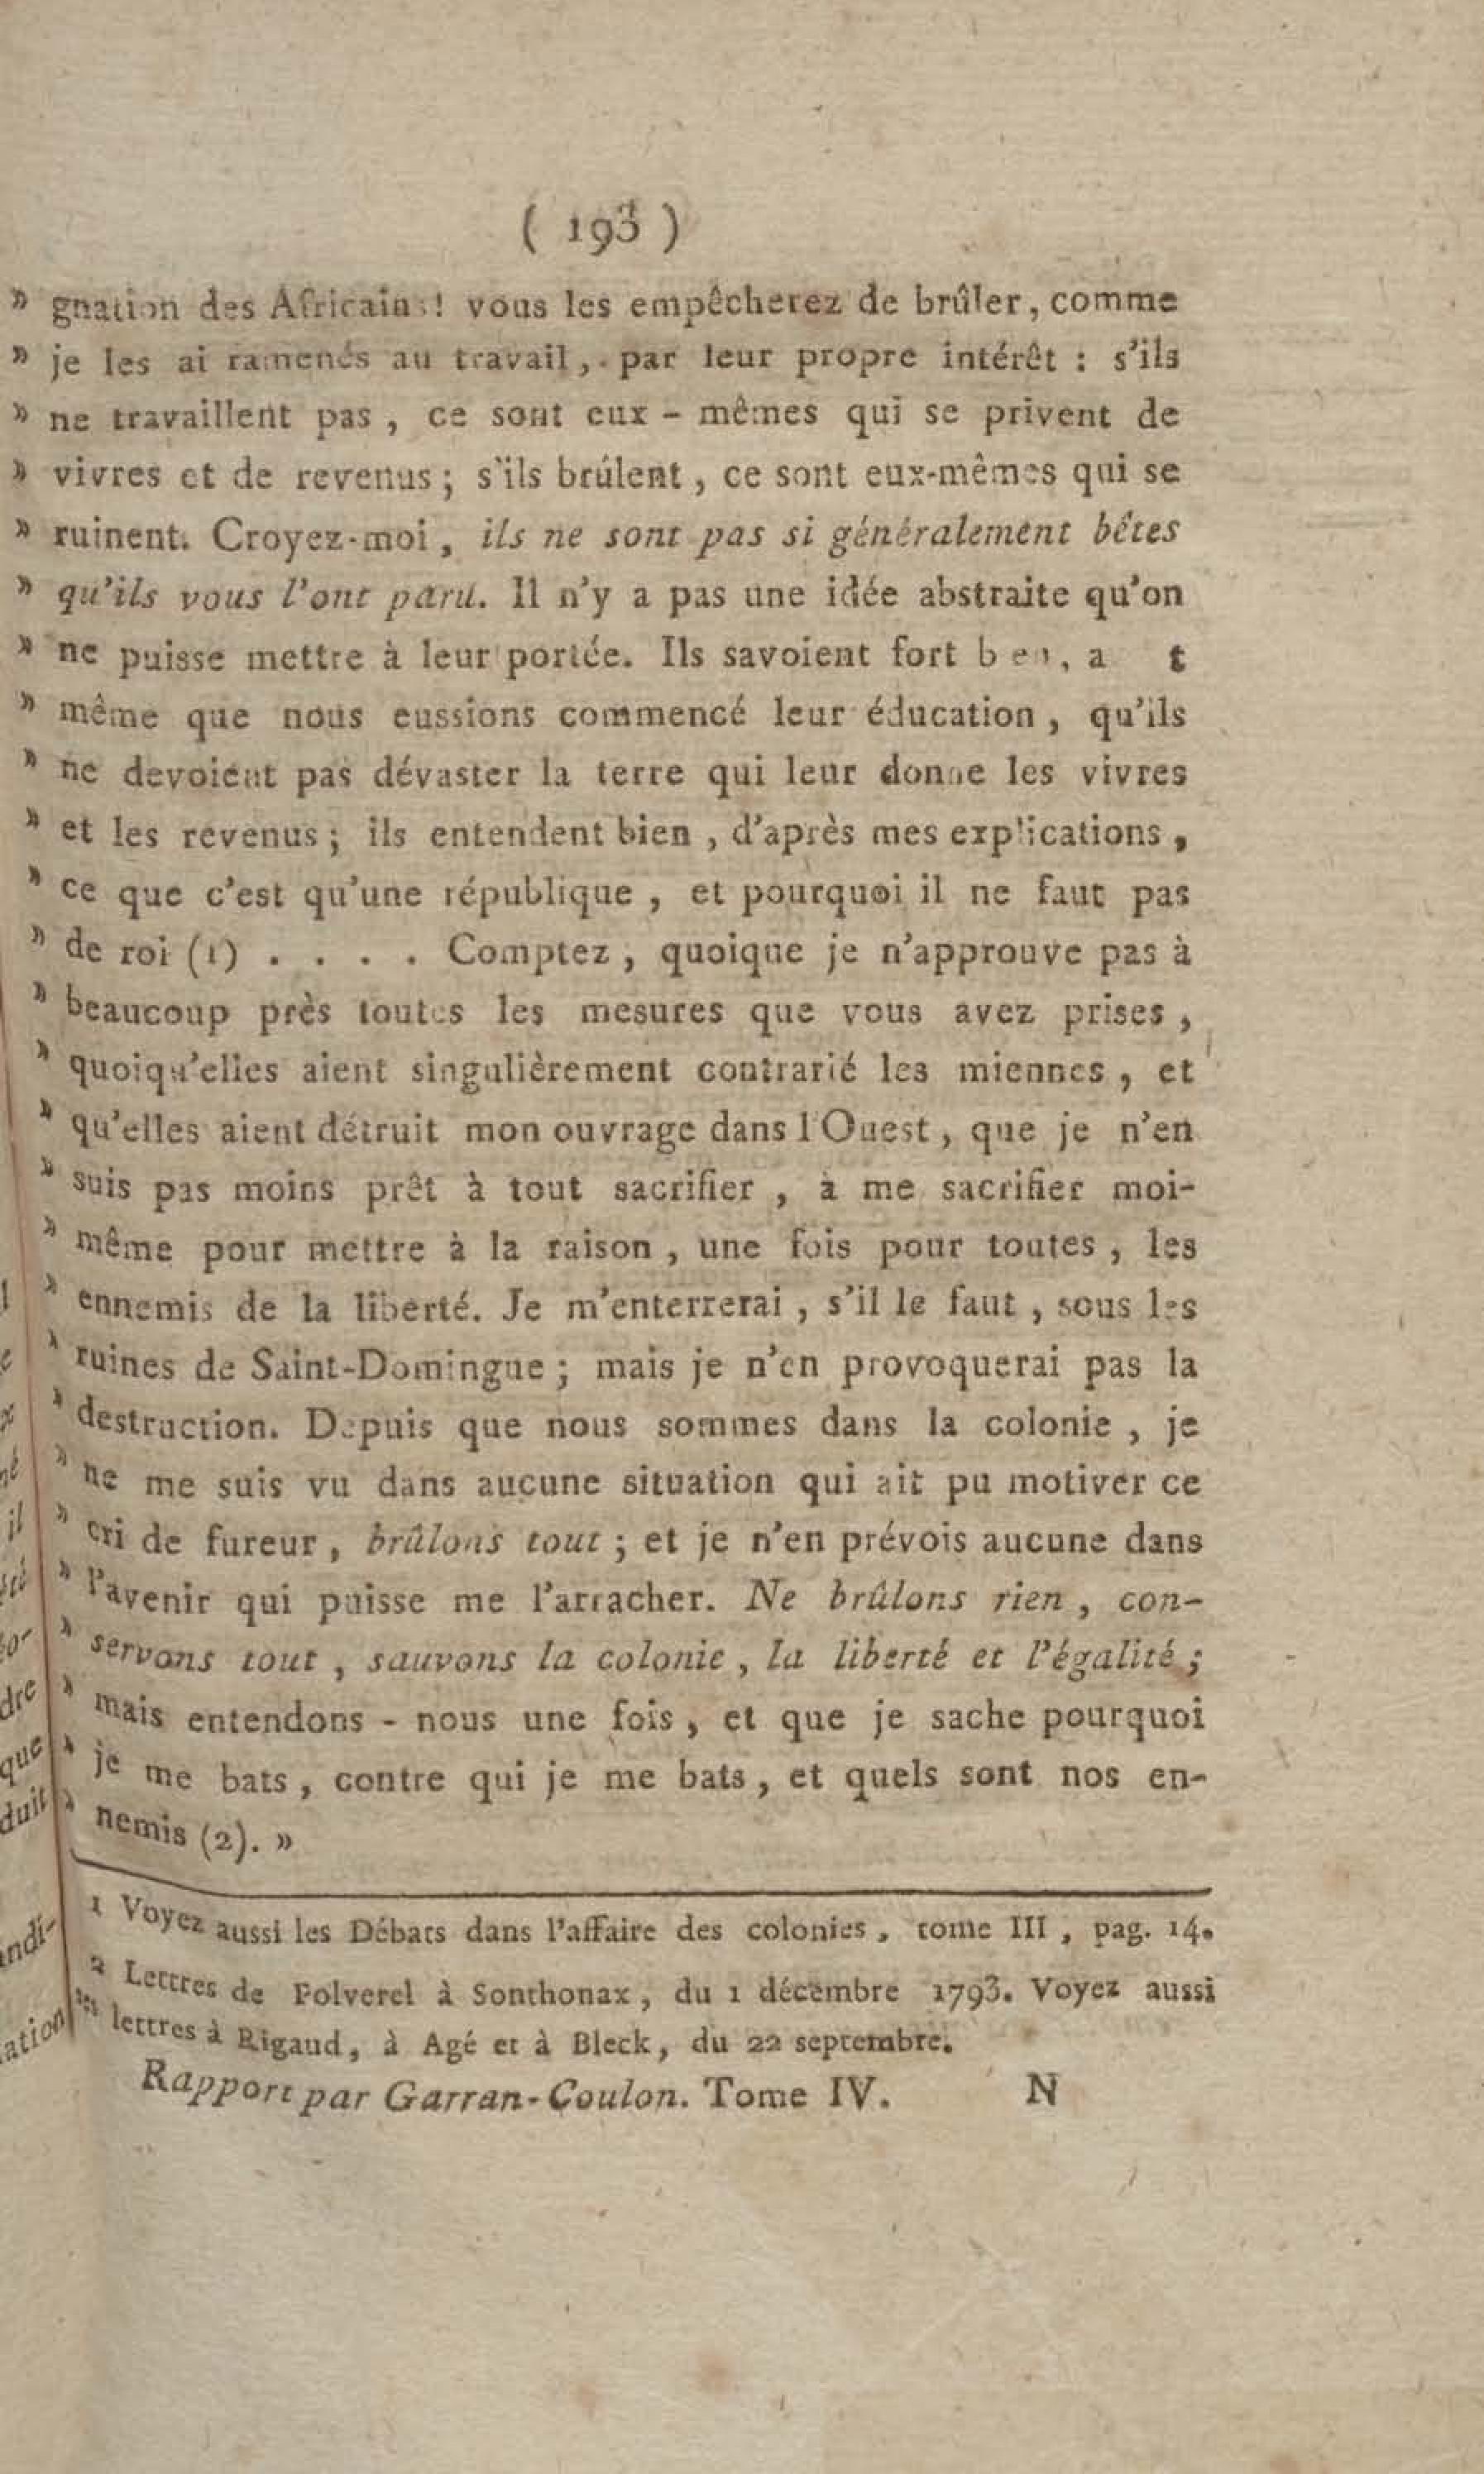 ( 193 )
» gnation des Africains! vous les empêcherez de brûler, comme
» je les ai ramenés au travail, par leur propre intérêt : s'ils
» ne travaillent pas, ce sont eux-mêmes qui se privent de
» vivres et de revenus; s'ils brûlent, ce sont eux-mêmes qui se
» ruinent. Croyez-moi, ils ne sont pas si généralement bêtes
» qu'ils vous l'ont paru. Il n'y a pas une idée abstraite qu'on
» ne puisse mettre à leur portée. Ils savoient fort b en, a t
» même que nous eussions commencé leur éducation, qu'ils
» ne devoient pas dévaster la terre qui leur donne les vivres
» et les revenus; ils entendent bien, d'après mes explications,
» ce que c'est qu'une république, et pourquoi il ne faut pas
» de roi (1) . . . . Comptez, quoique je n'approuve pas à
» beaucoup près toutes les mesures que vous avez prises,
» quoiqu'elles aient singulièrement contrarié les miennes, et
» qu'elles aient détruit mon ouvrage dans l'Ouest, que je n'en
» suis pas moins prêt à tout sacrifier, à me sacrifier moi-
» même pour mettre à la raison, une fois pour toutes, les
» ennemis de la liberté. Je m'enterrerai, s'il le faut, sous les
» ruines de Saint-Domingue; mais je n'en provoquerai pas la
» destruction. Depuis que nous sommes dans la colonie, je
» ne me suis vu dans aucune situation qui ait pu motiver ce
» cri de fureur, brûlons tout; et je n'en prévois aucune dans
» l'avenir qui puisse me l'arracher. Ne brûlons rien, con-
» servons tout, sauvons la colonie, la liberté et l'égalité;
» mais entendons-nous une fois, et que je sache pourquoi
» je me bats, contre qui je me bats, et quels sont nos en-
» nemis (2). »
1 Voyez aussi les Débats dans l'affaire des colonies, tome III, pag. 14.
2 Lettres de Polverel à Sonthonax, du 1 décembre 1793. Voyez aussi
les lettres à Rigaud, à Agé et à Bleck, du 22 septembre.
Rapport par Garran-Coulon. Tome IV. N